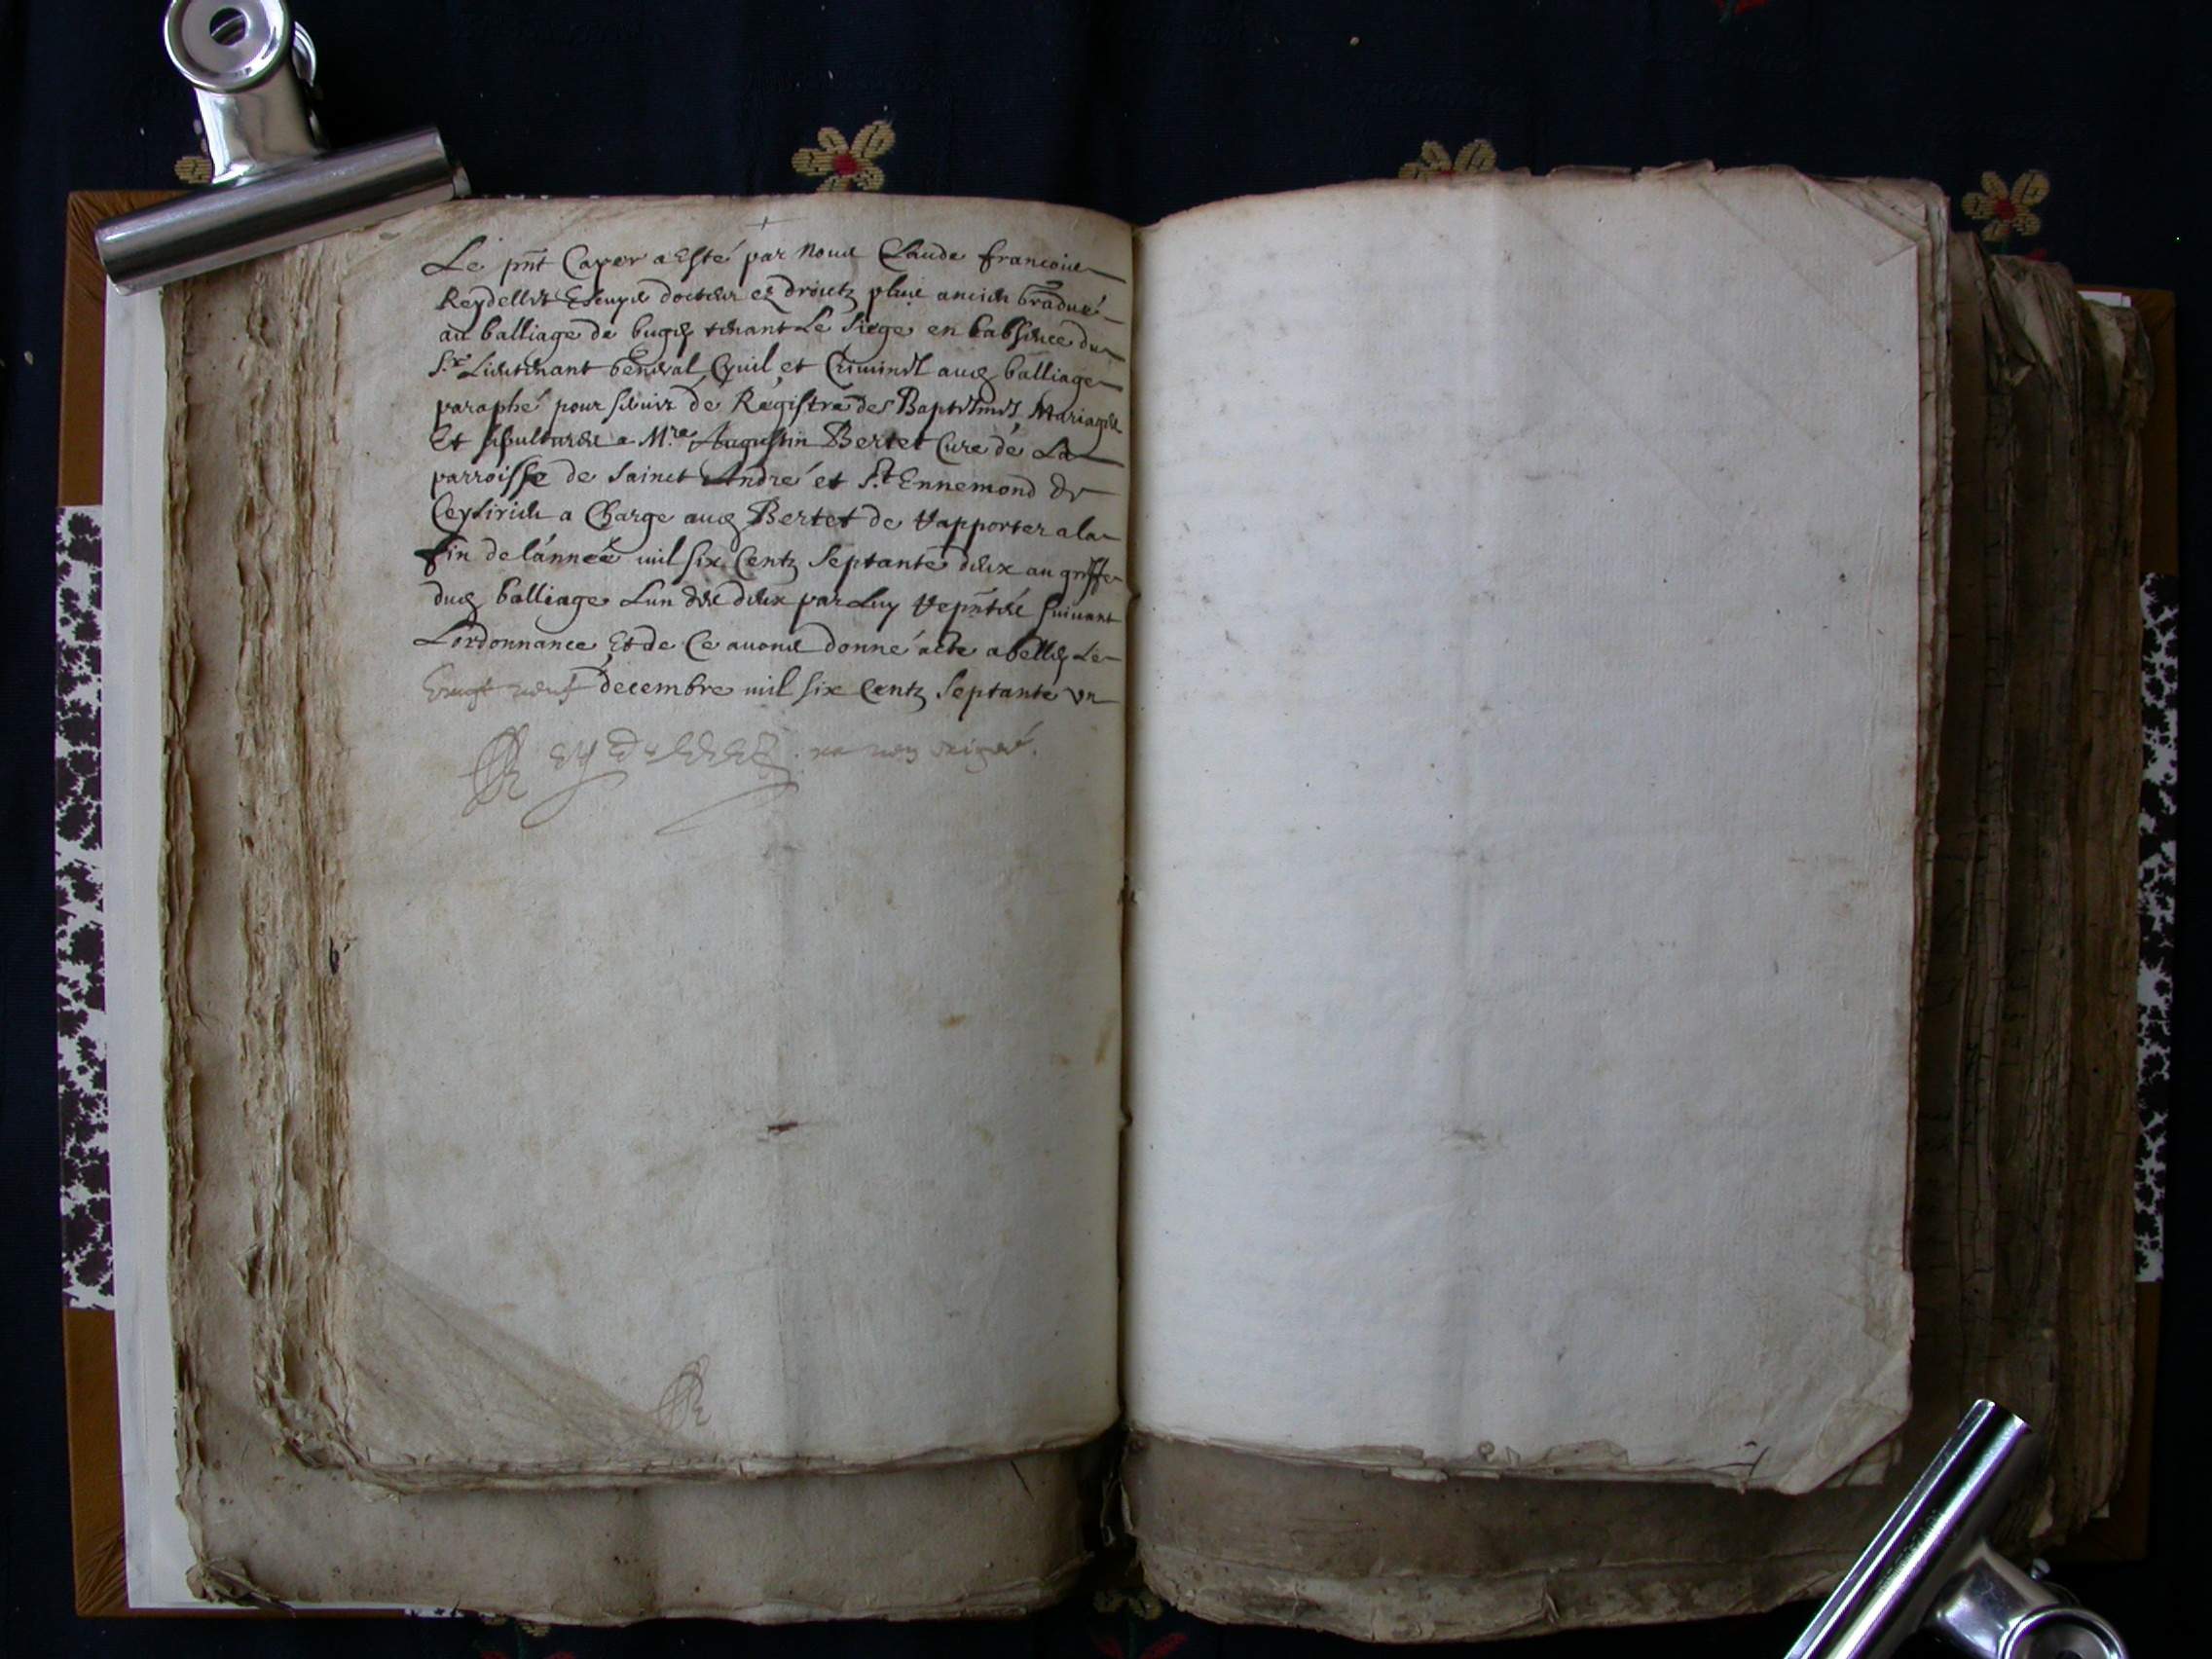 Le pnt Cayer a Esté par Nous Claude francois
Reydellet Escuyer docteur ez droictz plus ancien Gradué
au balliage de bugey tenant Le Siege en L'absence du
Sr Lieutenant General Cyuil et Criminel aud balliage
paraphé pour seruir de Registre des Baptesmes Mariages
Et sepultures a Mre Augustin Bertet Cure de La
parroisse de Sainct André et St Ennemond de
Ceyzirieu a Charge aud Bertet de Rapporter a la
fin de lánneé mil six Centz Septante deux au greffe
dud balliage Lun des deux par Luy Repntés suiuant
Lordonnance Et de Ce auons donné acte a belley Le
Vingt neuf decembre mil six Centz Septante vn
Reydellet